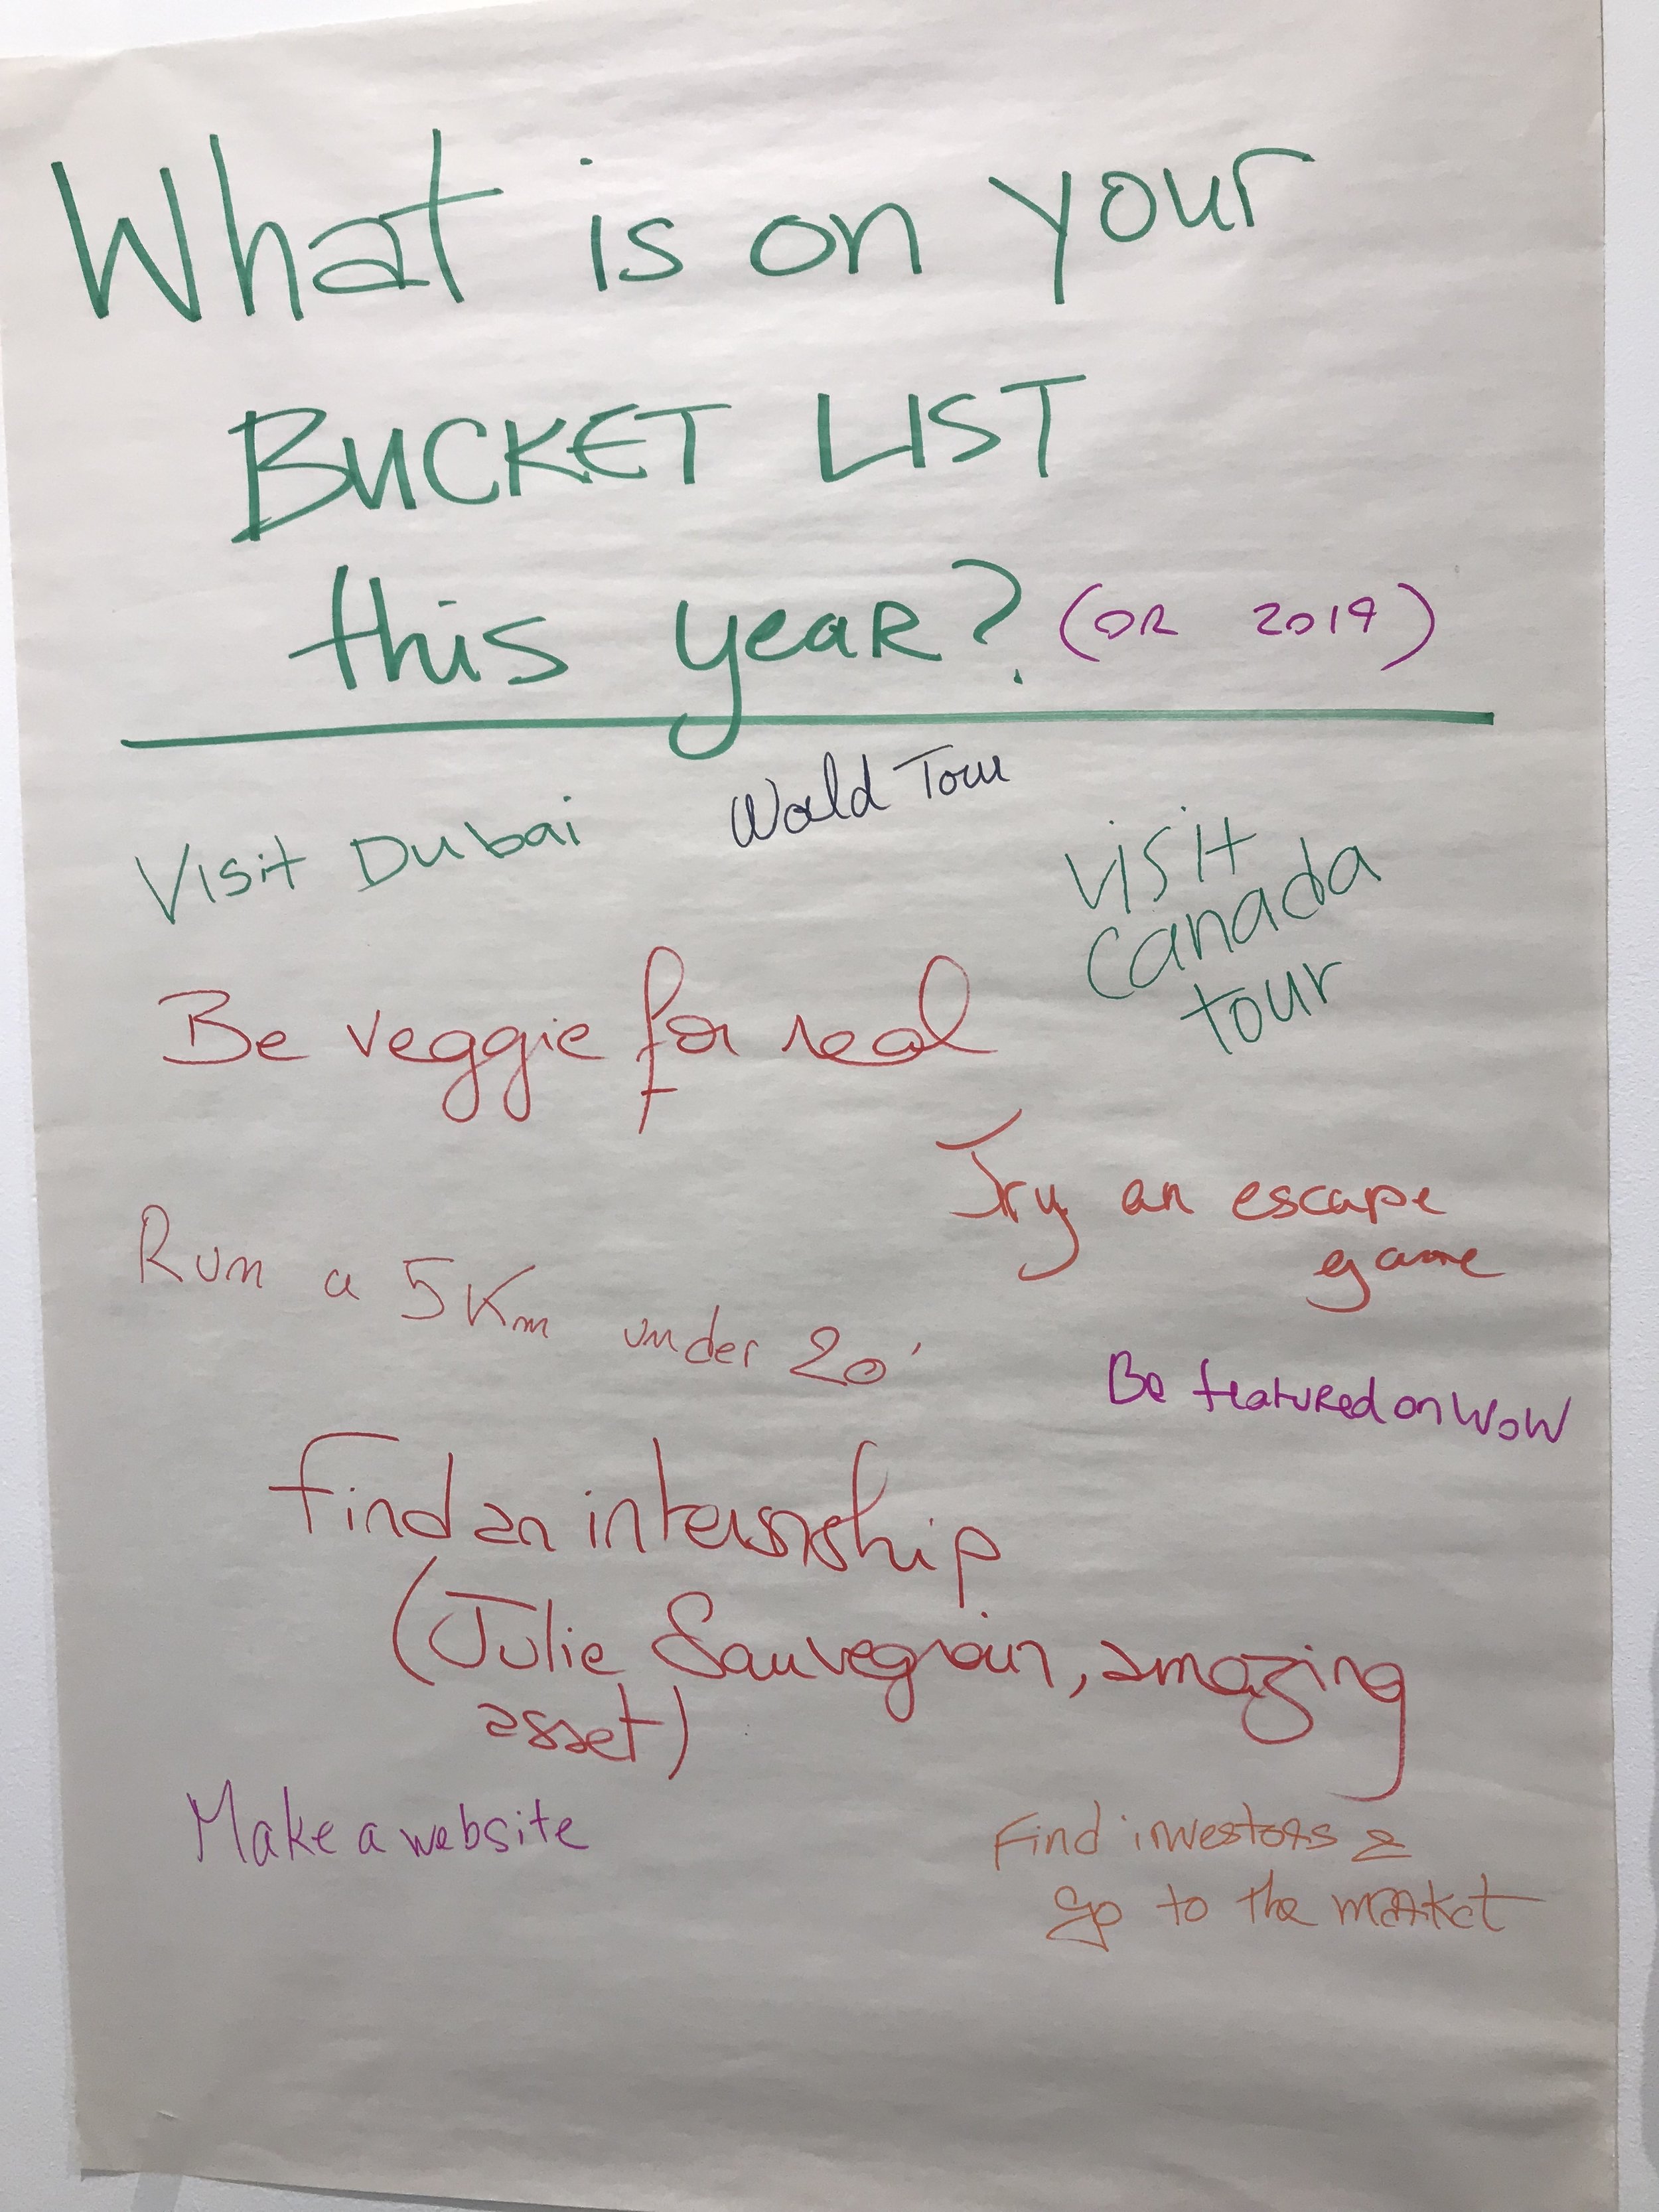 What is on your
BUCKET LIST
this year? (OR 2019)
Visit Dubai
World Tour
Visit
Canada
tour
Be veggie for real
Try an escape
game
Run a 5Km under 20'
Be featured on WoW
Find an internship
(Julie Sauvegrain, amazing
asset)
Make a website
Find investors &
go to the market